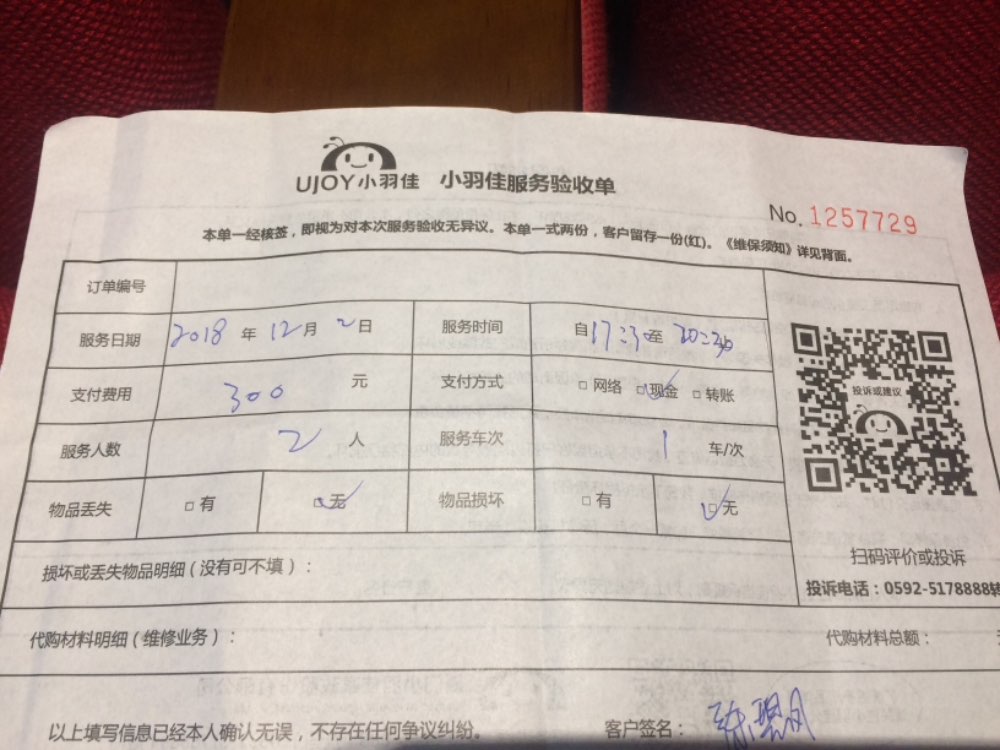 UJOY小羽佳 小羽佳服务验收单
No. 1257729
本单一经核签，即视为对本次服务验收无异议。本单一式两份，客户留存一份(红)。《维保须知》详见背面。
订单编号
服务日期 2018 年 12 月 2 日 服务时间 自 17:30 至 20:30
支付费用 300 元 支付方式 □网络 □现金 □转账
投诉或建议
服务人数 2 人 服务车次 1 车/次
物品丢失 □有 □无 物品损坏 □有 □无
扫码评价或投诉
损坏或丢失物品明细（没有可不填）：
投诉电话：0592-5178888转
代购材料明细（维修业务）： 代购材料总额：
以上填写信息已经本人确认无误，不存在任何争议纠纷。 客户签名：